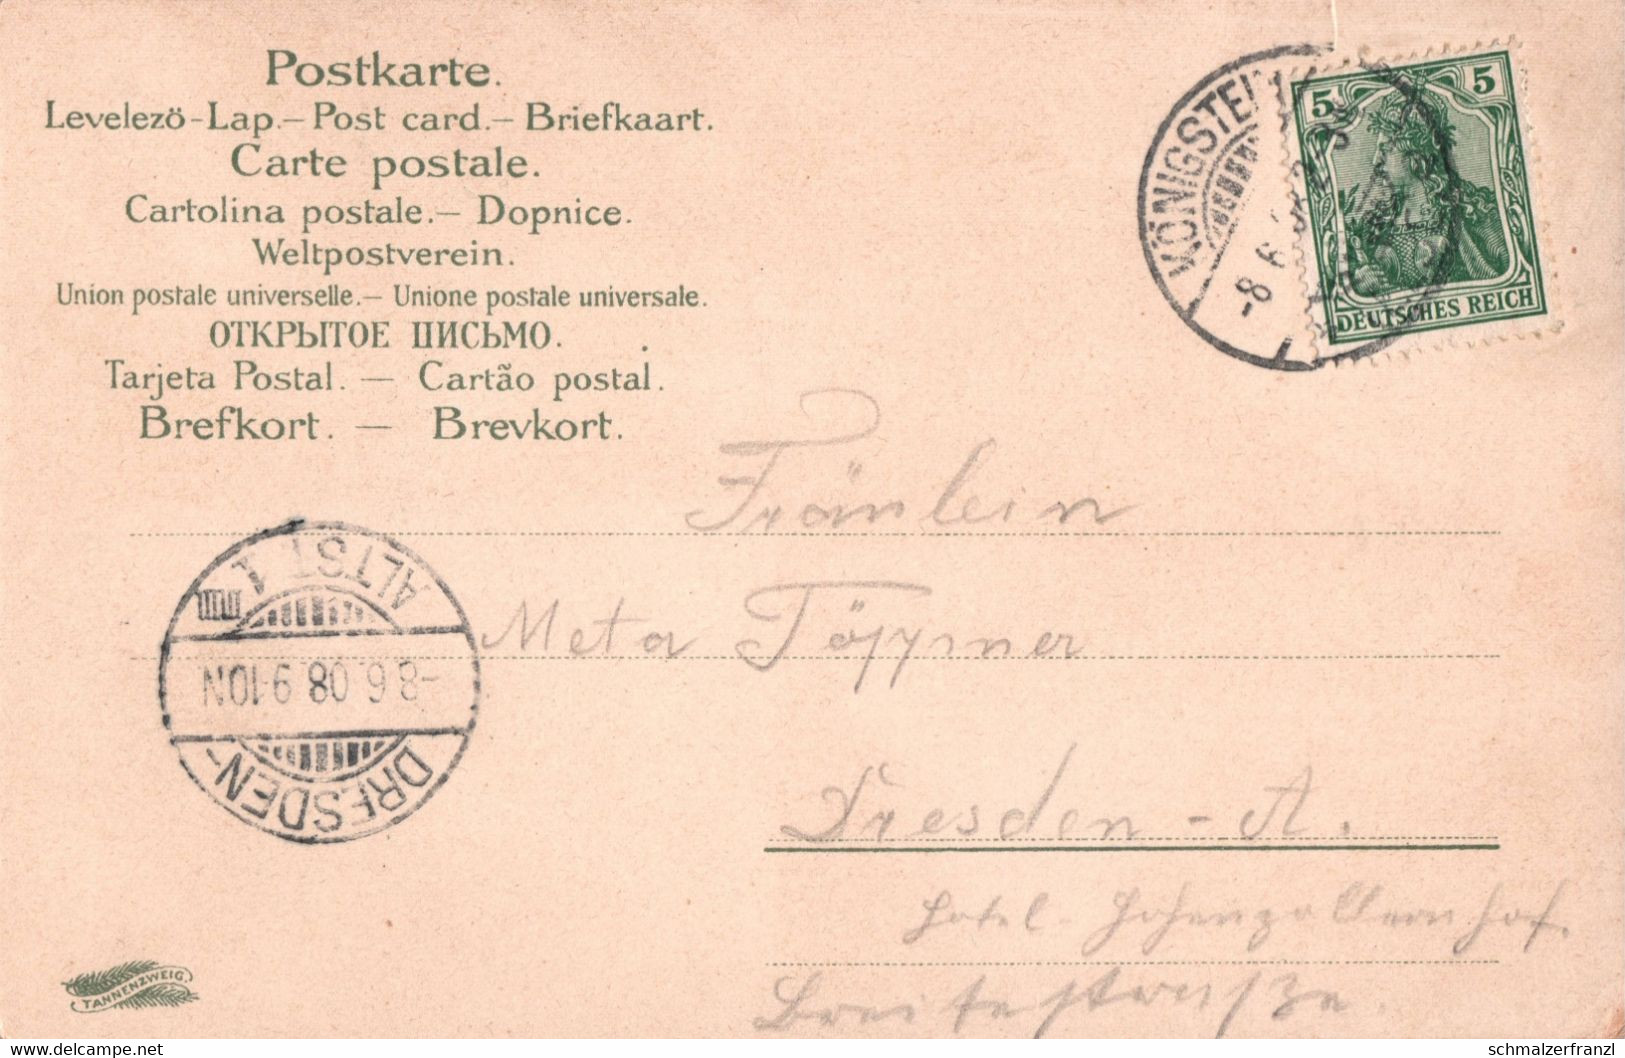 Postkarte.
Levelezö-Lap.— Post card.— Briefkaart.
Carte postale.
Cartolina postale.— Dopnice.
Weltpostverein.
Union postale universelle.— Unione postale universale.
ОТКРЫТОЕ ПИСЬМО.
Tarjeta Postal. — Cartão postal.
Brefkort. — Brevkort.
KÖNIGSTEIN
-8 6
5 5
DEUTSCHES REICH
Fräulein
Meta Töppner
Dresden-A.
Hotel-Hohenzollernhof.
Breitestraße.
DRESDEN-
-8.6.08.9-10N
ALTST.1.
TANNENZWEIG.
www.delcampe.net
schmalzerfranzl